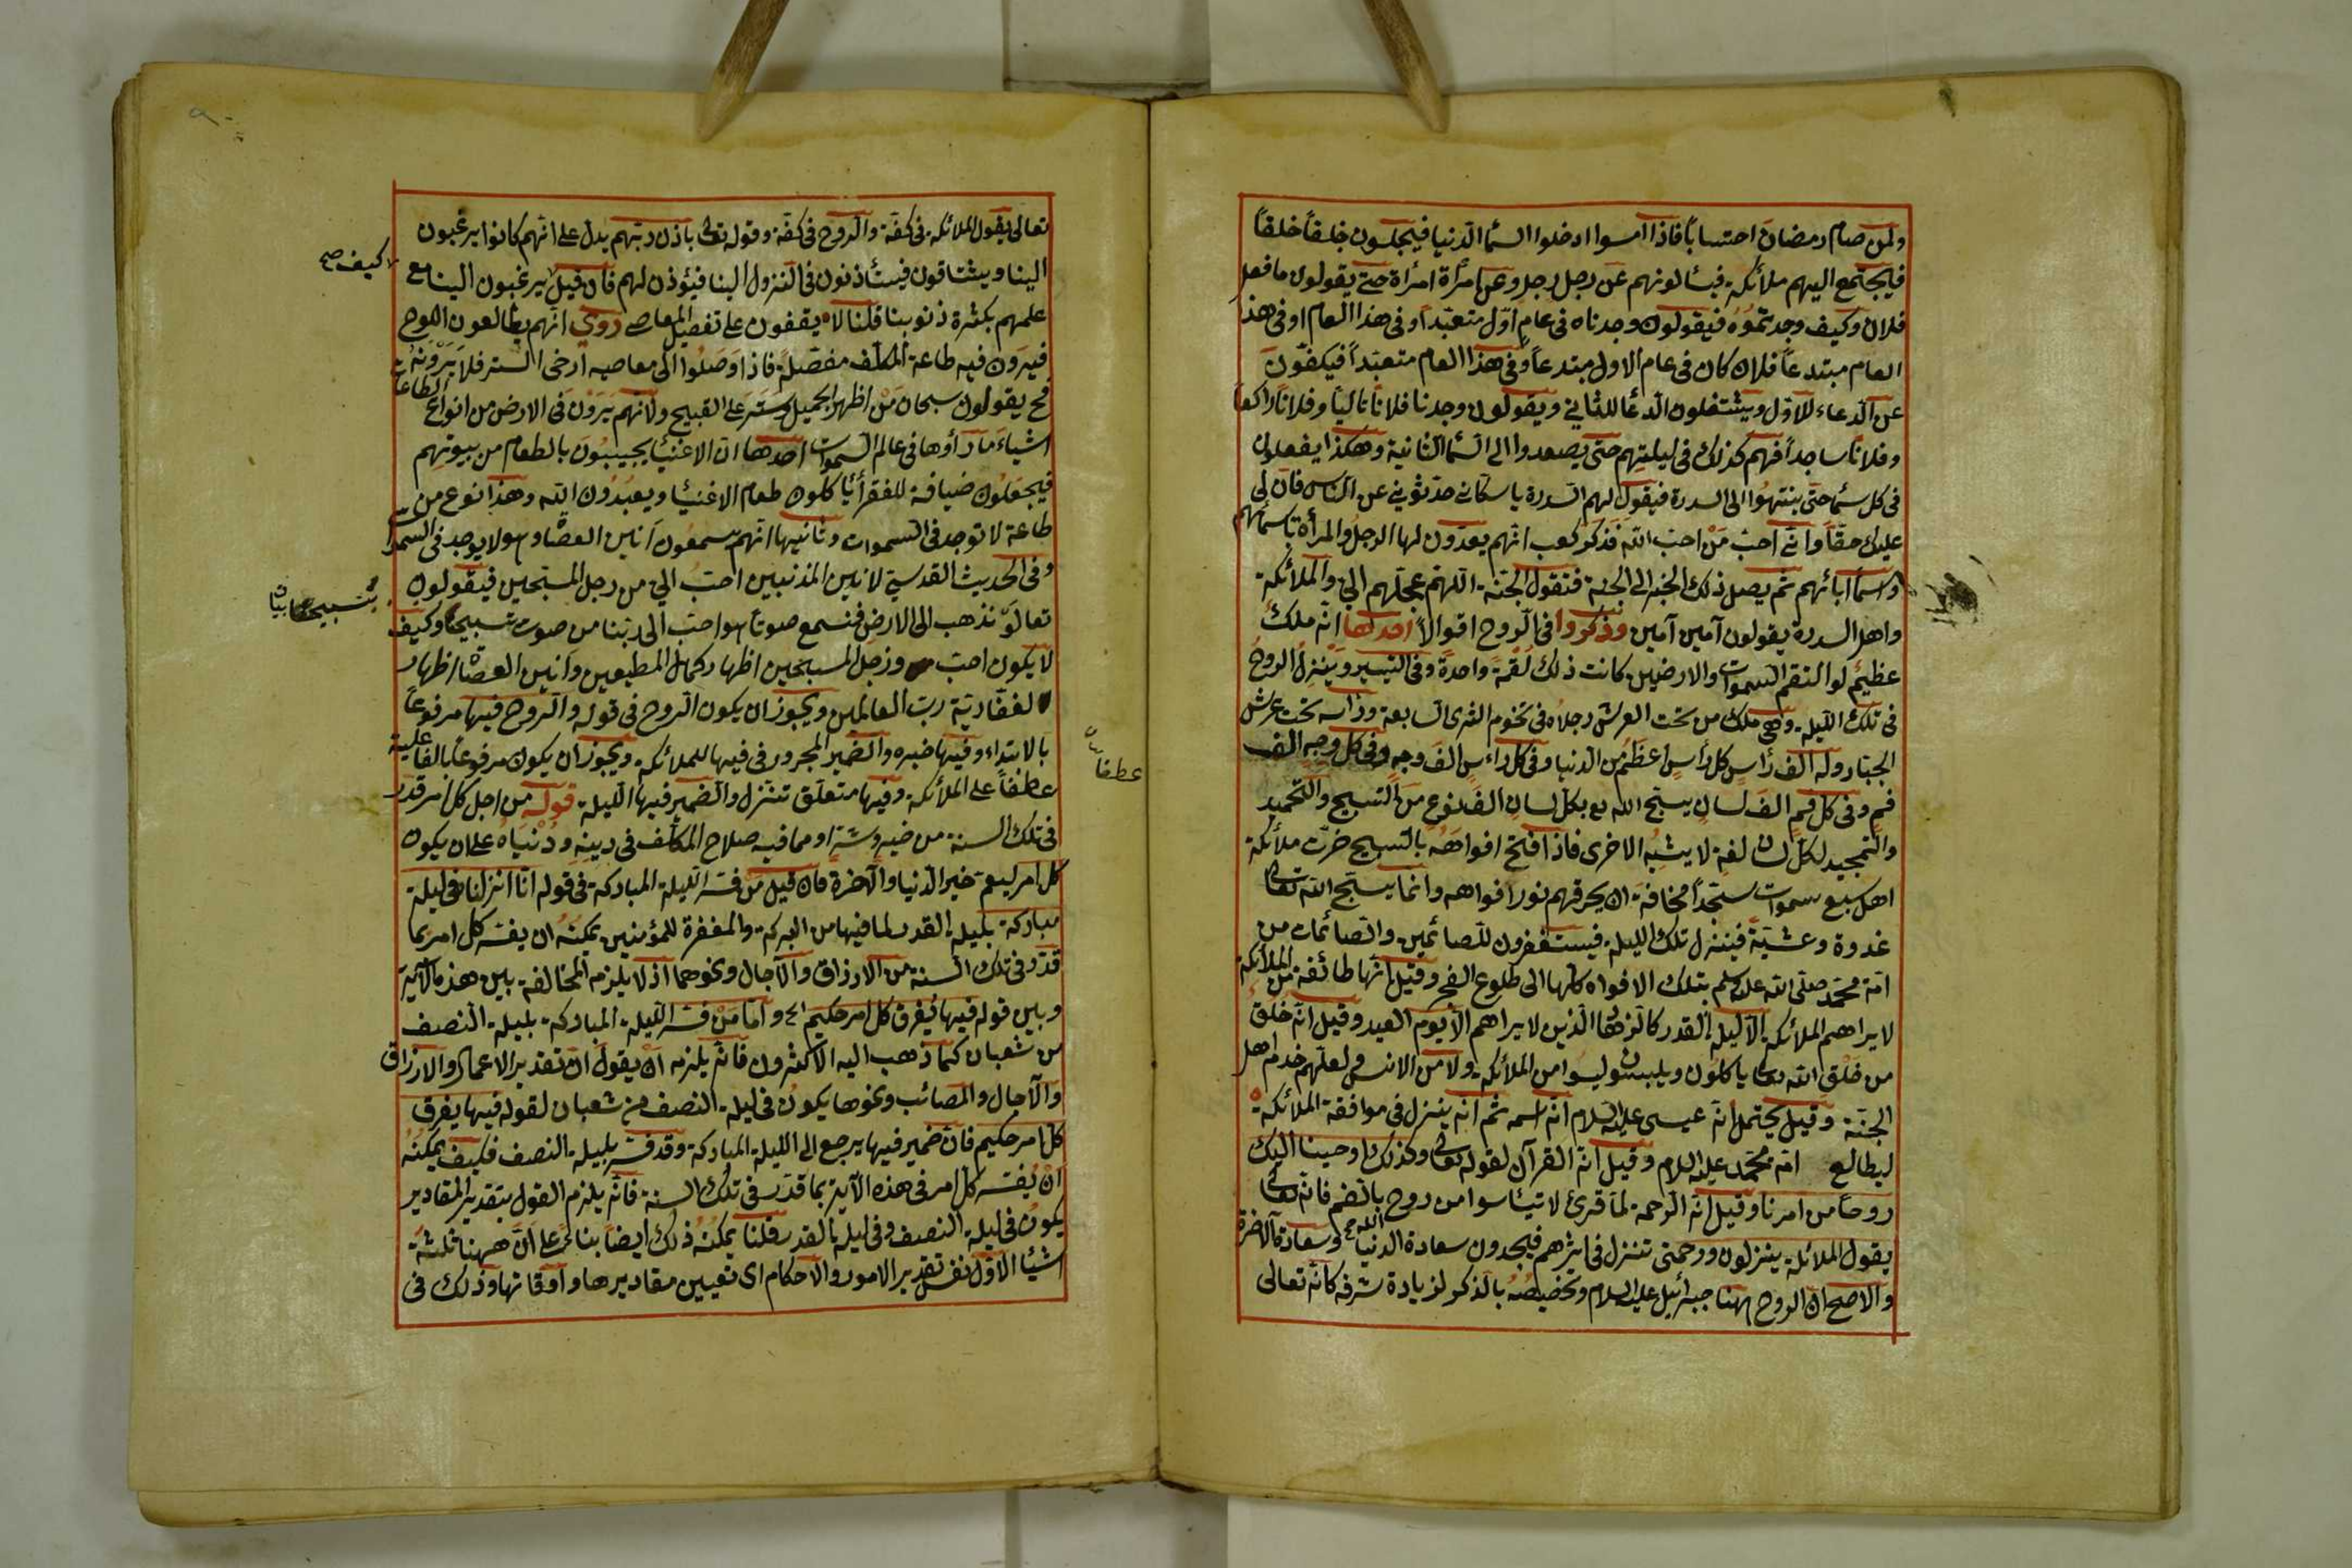 ولمن صام رمضان احتسابا فاذا امسوا ادخلوا السما الدنيا فيجلسون خلقاً خلقاً
فيجتمع اليهم ملائكة فيسألونهم عن رجل رجل وعن امرأة امرأة حتى يقولون ما فعل
فلان وكيف وجدتموه فيقولون وجدناه فى عام اوّل متعبّداً وفى هذا العام او فى هذ
العام مبتدعاً فلان كان فى عام الاول مبتدعاً وفى هذا العام متعبّداً فيكفّون
عن الدعاء للاوّل ويشتغلون الدعا للثانى ويقولون وجدنا فلاناً تالياً وفلاناً راكعاً
وفلاناً ساجداً فهم كذلك فى ليلتهم حتى يصعدوا الى السما الثانية وهكذا يفعلون
فى كل سما حتى ينتهوا الى السدرة فيقول لهم السدرة يا سكانى حدثونى عن الناس فان لى
عليك حقّاً وانى احبّ من احبّ الله فذكر كعب انهم يعدّون لها الرجل والمرأة باسمائهم
واسما ابائهم ثم يصل ذلك الخبر الى الجنة فتقول الجنة اللهم عجّلهم الىّ والملائكة
واهل السدرة يقولون آمين آمين وذكروا فى الروح اقوالاً احدها انه ملك
عظيم لو التقم السموات والارضين كانت ذلك لقمة واحدة وفى التيسير وينزل الروح
فى تلك الليلة وهى ملك من تحت العرش رجلاه فى تخوم الثرى السابعة ورأسه تحت عرش
الجبّار وله الف رأس كل رأس اعظم من الدنيا وفى كل راءس الف وجه وفى كل وجه الف
فم وفى كل فم الف لسان يسبّح الله بكل لسان الف نوع من التسبيح والتحميد
والتمجيد لكل لسان لغة لا يشبه الاخرى فاذا افتح افواهه بالتسبيح خرّت ملائكة
اهل سبع سموات سجّداً مخافة ان يحرقهم نور افواهه وانما يسبّح الله تعالى
غدوة وعشيّة فينزل تلك الليلة فيستغفرون للصائمين والصائمات من
امّة محمّد صلى الله عليه وسلم بتلك الافواه كلها الى طلوع الفجر وقيل انها طائفة من الملائكة
لا يراهم الملائكة الا ليلة القدر كالزهاد الذين لا يراهم الا يوم العيد وقيل انه خلق
من خلق الله تعالى ياكلون ويلبسون وليسوا من الملائكة ولا من الانس ولعلهم خدم اهل
الجنة وقيل يحتمل انه عيسى عليه السلام انه اسمه ثم انه ينزل فى موافقة الملائكة
ليطالع امّة محمّد عليه السلام وقيل انه القرآن لقوله تعالى وكذلك اوحينا اليك
روحاً من امرنا وقيل انه الرحمة لما قرئ لا تيئاسوا من روح بالضم فانه تعالى
الله
يقول الملائكة ينزلون ورحمتى تنزل فى اثرهم فيجدون سعادة الدنيا وسعادة الاخرة
والاصح ان الروح ههنا جبرائيل عليه السلام وتخصيصه بالذكر لزيادة شرفه كانه تعالى
تعالى يقول الملائكة فى كفّة والروح فى كفّة وقوله تعالى باذن ربّهم يدلّ على انهم كانوا يرغبون
الينا ويشتاقون فيستأذنون فى النزول الينا فيؤذن لهم فان قيل يرغبون الينا مع
كيف صح
علمهم بكثرة ذنوبنا قلنا لا يقفون على تفصيل المعاصى روى انهم يطالعون اللوح
فيرون فيه طاعة المكلّف مفصّلة فاذا وصلوا الى معاصيه ارخى الستر فلا يرونه
فح يقولون سبحان من اظهر الجميل وستر على القبيح ولانهم يرون فى الارض من انواع الطاعات
اشياء ما رأوها فى عالم السموات احدها ان الاغنيا يجيبون بالطعام من بيوتهم
فيجعلون ضيافة للفقرأ يأكلون طعام الاغنيا ويعبدون الله وهذا نوع من
طاعة لا توجد فى السموات وثانيها انهم يسمعون انين العصاة وهو لا يوجد فى السموات
وفى الحديث القدسى لانين المذنبين احبّ الىّ من زجل المسبّحين فيقولون
تعالوا نذهب الى الارض فنسمع صوتا هو احبّ الى ربّنا من صوت تسبيحنا وكيف
لا يكون احبّ وزجل المسبحين اظهار كمال المطيعين وانين العصاة اظهار
لغفّاريّة ربّ العالمين ويجوز ان يكون الروح فى قوله والروح فيها مرفوعاً
بالابتداء وفيها خبره والضمير المجرور فى فيها للملائكة ويجوز ان يكون مرفوعا بالفاعلية
عطفاً على الملائكة وفيها متعلّق تنزل والضمير فيها الليلة قوله من اجل كل امر قدّر
عطفا
فى تلك السنة من خير وشر او مما فيه صلاح المكلّف فى دينه ودنياه على ان يكون
كل امر ليعمّ خير الدنيا والآخرة فان قيل من فسّر الليلة المباركة فى قوله انا انزلناه فى ليلة
مباركة بليلة القدر لما فيها من البركة والمغفرة للمؤمنين يمكنه ان يفسّر كل امر بما
قدّر فى تلك السنة من الارزاق والآجال ونحوهما اذ لا يلزمه المخالفة بين هذه الآية
وبين قوله فيها يفرق كل امر حكيم واما من فسّر الليلة المباركة بليلة النصف
من شعبان كما ذهب اليه الاكثرون فانه يلزمه ان يقول ان تقدير الاعمار والارزاق
والآجال والمصائب ونحوها يكون فى ليلة النصف من شعبان لقوله فيها يفرق
كل امر حكيم فان ضمير فيها يرجع الى الليلة المباركة وقد فسّر بليلة النصف فكيف يمكنه
ان يفسّر كل امر فى هذه الآية بما قدّر فى تلك السنة فانه يلزم القول بتقدير المقادير
يكون فى ليلة النصف وفى ليلة القدر قلنا يمكنه ذلك ايضا بنا على ان ههنا ثلثة
اشيا الاوّل نفس تقدير الامور والاحكام اى تعيين مقاديرها واوقاتها وذلك فى